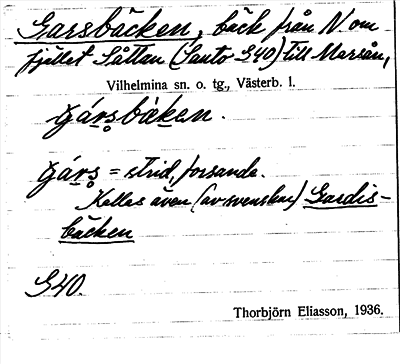 Garsbäcken, bäck från N. om
fjället Såttan (Santo G40) till Marsån,
Vilhelmina sn. o. tg., Västerb. l.
gársbäken.
gárs = strid, forsande.
Kallas även (av svenskar) Gardis-
bäcken
G40.
Thorbjörn Eliasson, 1936.